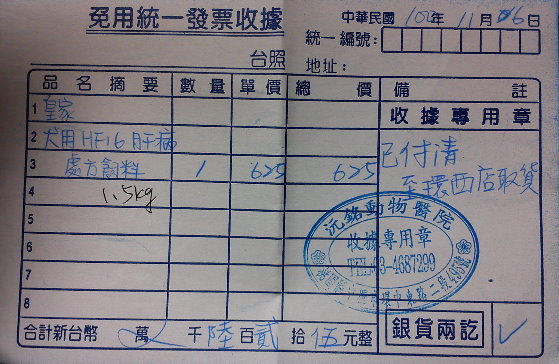 免用統一發票收據
中華民國 102年 11月 06日
統一編號:
台照
地址:
品名摘要 數量 單價 總價 備註
收據專用章
1 皇家
2 犬用 HF16 肝病
3 處方飼料 1 625 625
4 1.5kg
5
6
7
8
已付清
至環西店取貨
沅銘動物醫院
收據專用章
TEL:03-4687299
合計新台幣 萬 千 陸 百 貳 拾 伍 元整
銀貨兩訖 ✓